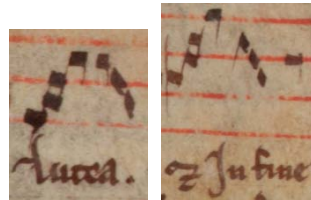 Lutea.
⁊ In fine